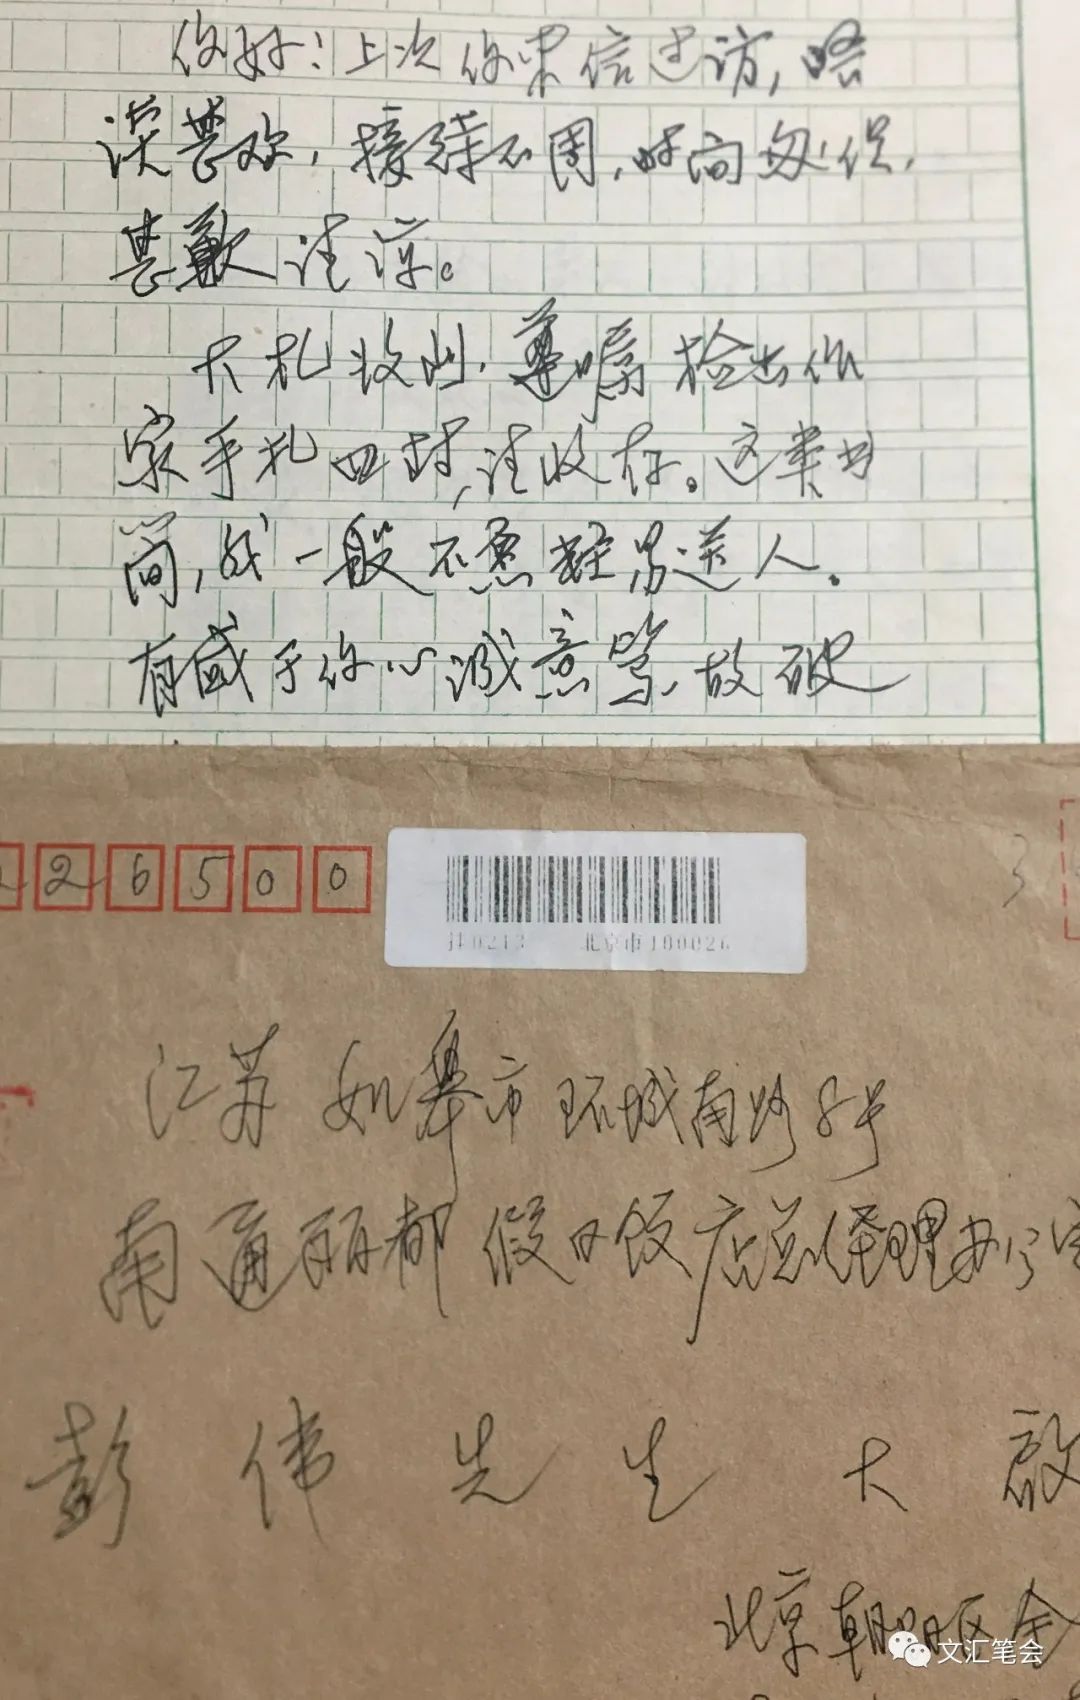 你好！上次你来信过访，晤
谈甚欢，接待不周，时间匆促，
甚歉请谅。
大札收到，遵嘱检出作
家手札四封，请收存。这类书
简，我一般不愿轻易送人。
有感于你心诚意笃，故破
226500
北京市100026
江苏如皋市环城南路8号
南通丽都假日饭店总经理办公室
彭伟先生大启
北京朝阳区
文汇笔会